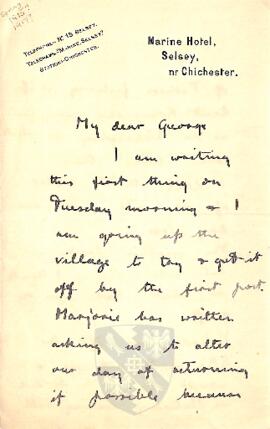 Spring
1915
TELEPHONE: Nº 15 SELSEY.
TELEGRAMS: "MARINE, SELSEY"
STATION: CHICHESTER.
Marine Hotel,
Selsey,
nr Chichester.
My dear George
I am writing
this first thing on
Tuesday morning & I
am going up the
village to try & get it
off by the first post.
Marjorie has written
asking us to alter
our day of returning
if possible because